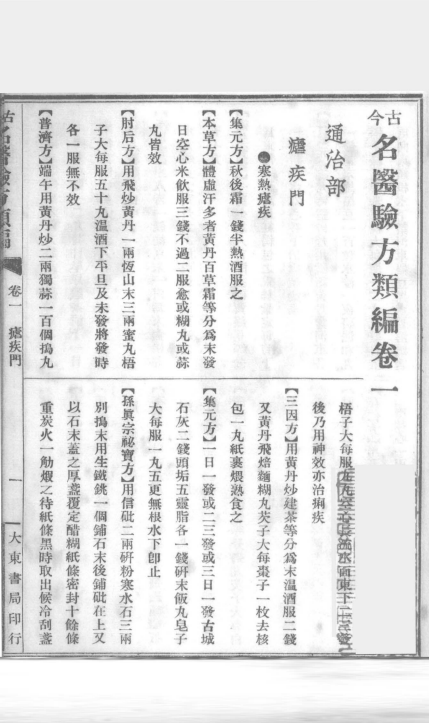 古今名醫驗方類編卷一
通治部
瘧疾門
●寒熱瘧疾
【集元方】秋後霜一錢半熱酒服之
【本草方】體虛汗多者黃丹百草霜等分爲末發
日空心米飲服三錢不過二服愈或糊丸或蒜
丸皆效
【肘后方】用飛炒黃丹一兩恆山末三兩蜜丸梧
子大每服五十丸溫酒下平旦及未發將發時
各一服無不效
【普濟方】端午用黃丹炒二兩獨蒜一百個搗丸
梧子大每服九丸空心長流水面東下二三發
後乃用神效亦治痢疾
【三因方】用黃丹炒建茶等分爲末溫酒服二錢
又黃丹飛焙麵糊丸芡子大每棗子一枚去核
包一丸紙裹煨熟食之
【集元方】一日一發或二三發或三日一發古城
石灰二錢頭垢五靈脂各一錢研末飯丸皂子
大每服一丸五更無根水下卽止
【孫眞宗祕寶方】用信砒二兩研粉寒水石三兩
別搗末用生鐵銚一個鋪石末後鋪砒在上又
以石末蓋之厚盞覆定醋糊紙條密封十餘條
重炭火一觔煅之待紙條黑時取出候冷刮盞
古今名醫驗方類編
卷一 瘧疾門
一
大東書局印行